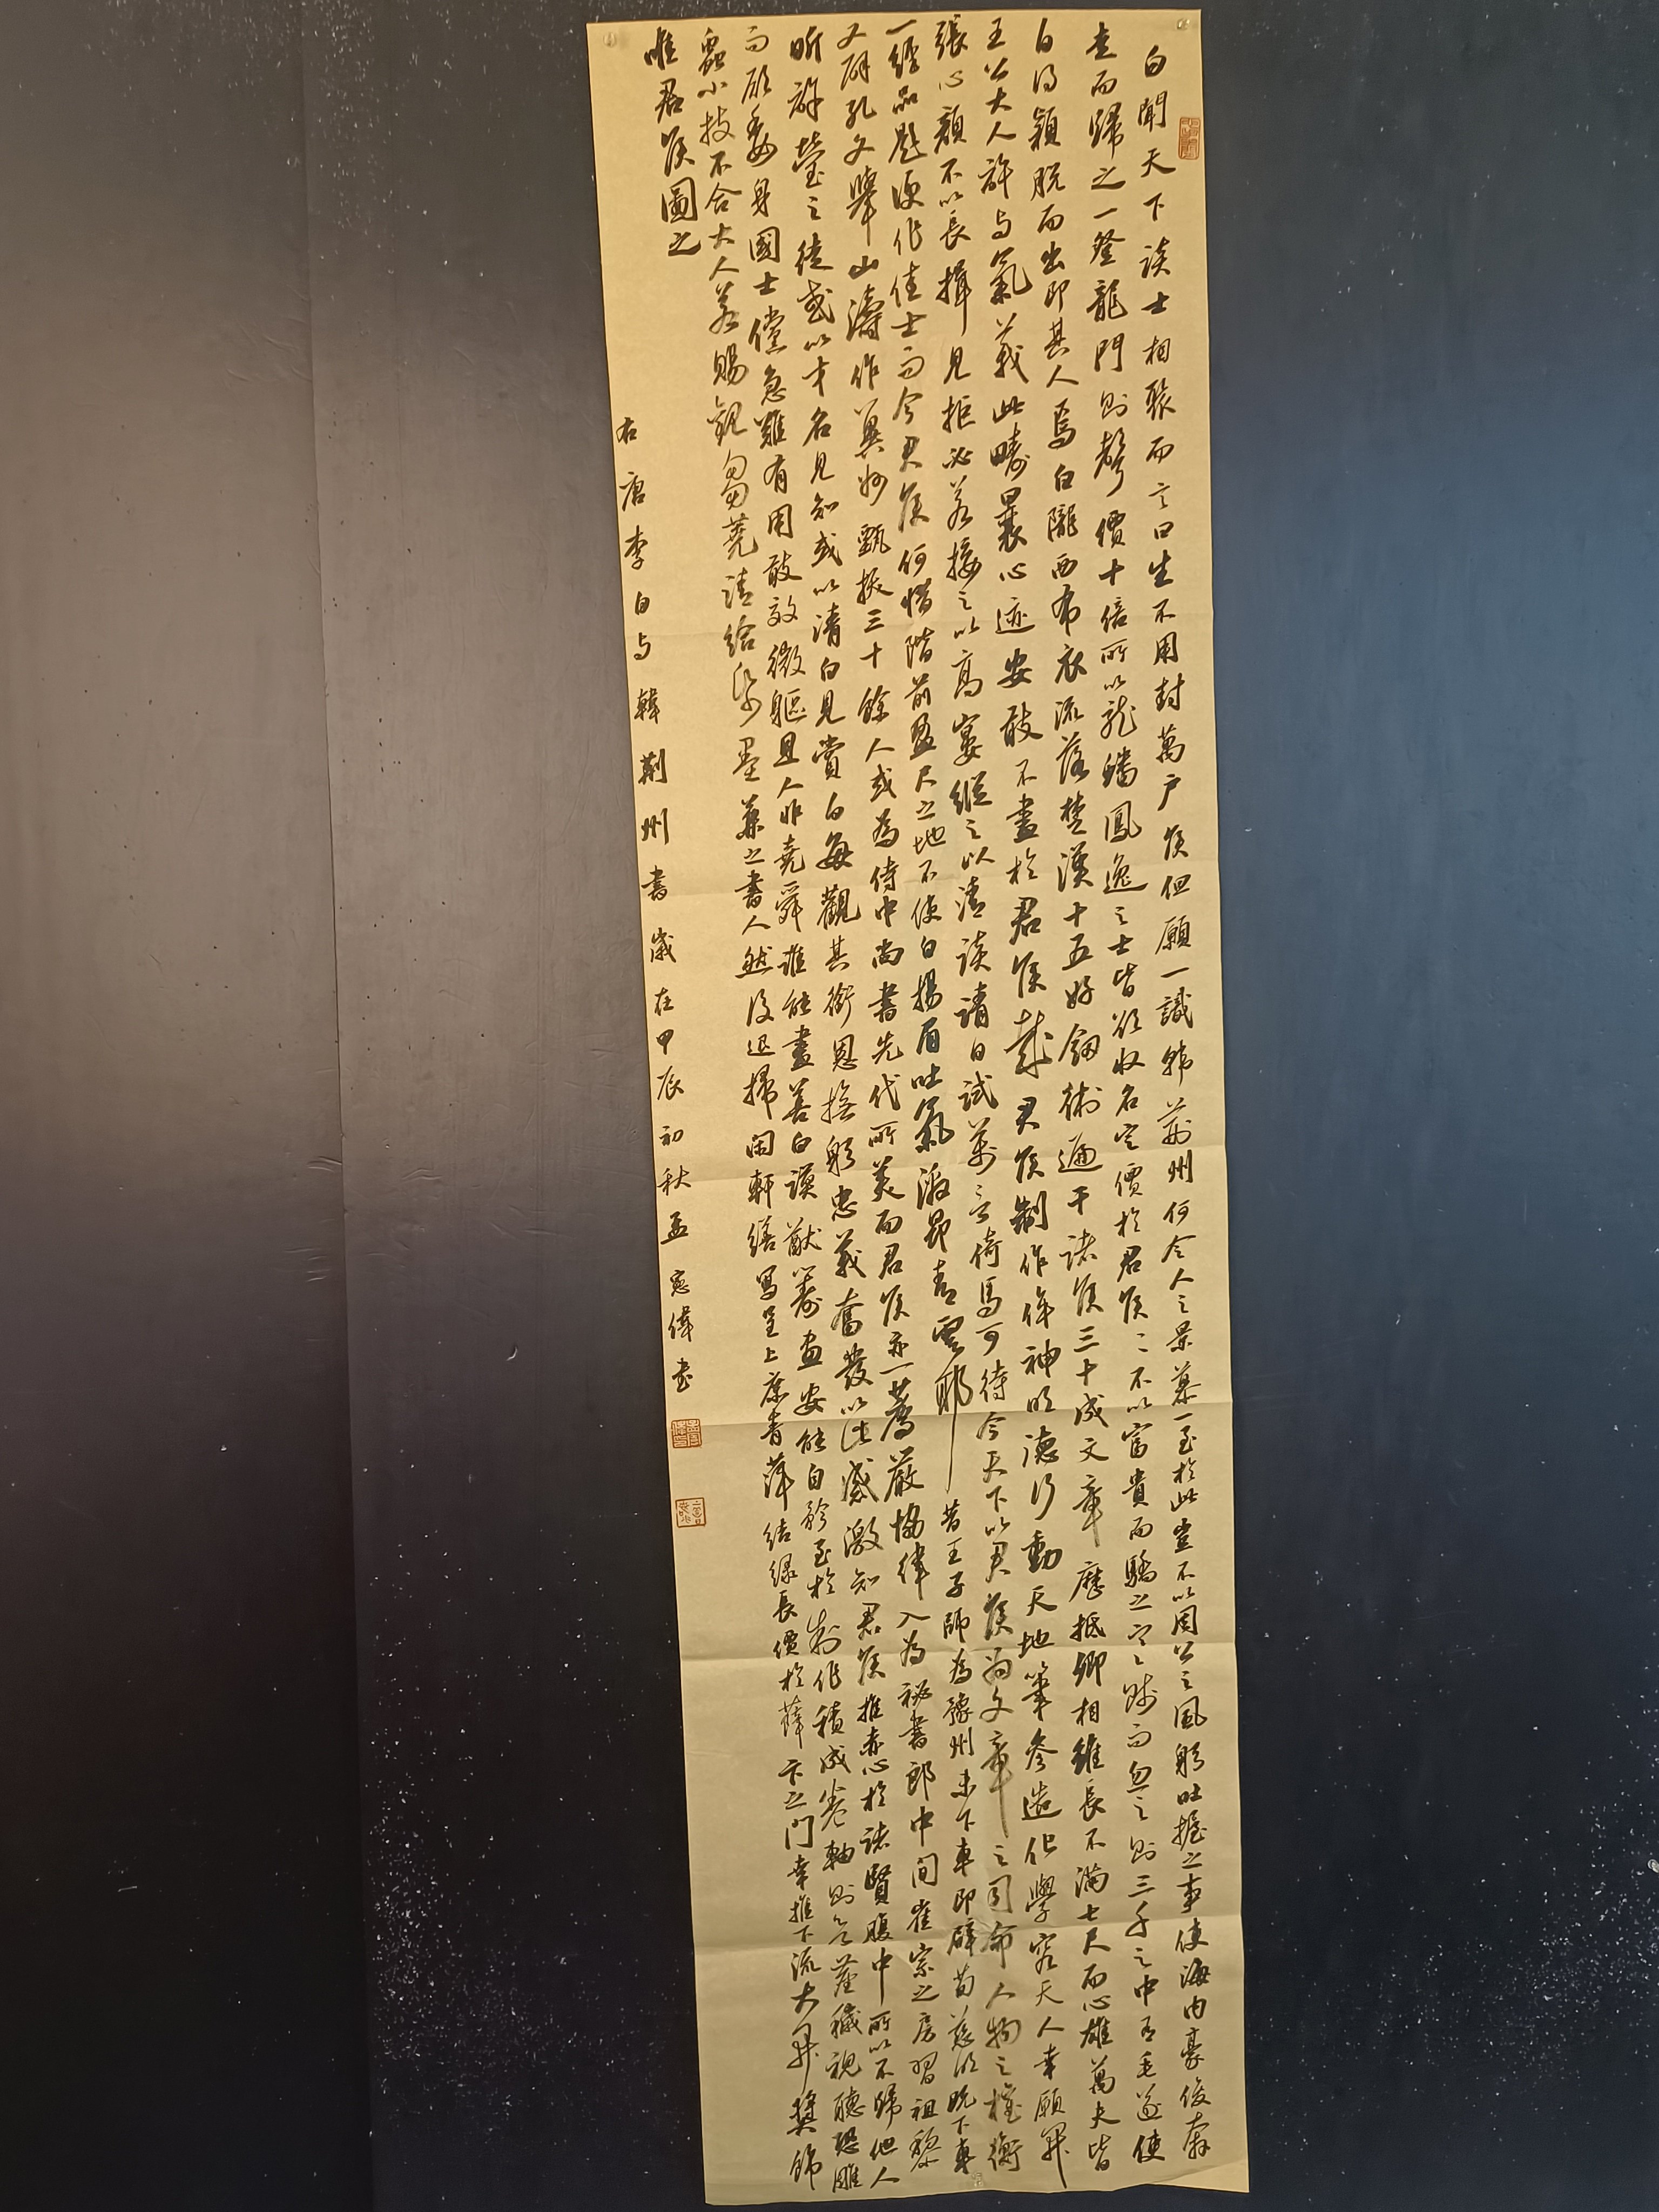 白聞天下談士相聚而言曰生不用封萬戶侯但願一識韓荊州何令人之景慕一至於此豈不以周公之風躬吐握之事使海內豪俊奔
走而歸之一登龍門則聲價十倍所以龍蟠鳳逸之士皆欲收名定價於君侯君侯不以富貴而驕之寒賤而忽之則三千之中有毛遂使
白得穎脫而出即其人焉白隴西布衣流落楚漢十五好劍術遍干諸侯三十成文章歷抵卿相雖長不滿七尺而心雄萬夫皆
王公大人許與氣義此疇曩心迹安敢不盡於君侯哉君侯制作侔神明德行動天地筆參造化學究天人幸願開
張心顏不以長揖見拒必若接之以高宴縱之以清談請日試萬言倚馬可待今天下以君侯為文章之司命人物之權衡
一經品題便作佳士而今君侯何惜階前盈尺之地不使白揚眉吐氣激昂青雲耶昔王子師為豫州未下車即辟荀慈明既下車
又辟孔文舉山濤作冀州甄拔三十餘人或為侍中尚書先代所美而君侯亦一薦嚴協律入為秘書郎中間崔宗之房習祖黎
昕許瑩之徒或以才名見知或以清白見賞白每觀其銜恩撫躬忠義奮發以此感激知君侯推赤心於諸賢腹中所以不歸他人
而願委身國士儻急難有用敢效微軀且人非堯舜誰能盡善白謨猷籌畫安能自矜至於制作積成卷軸則欲塵穢視聽恐雕
蟲小技不合大人若賜觀芻蕘請給紙墨兼之書人然後退掃閑軒繕寫呈上庶青萍結綠長價於薛卞之門幸推下流大開獎飾
唯君侯圖之
右唐李白與韓荊州書歲在甲辰初秋孟憲偉書